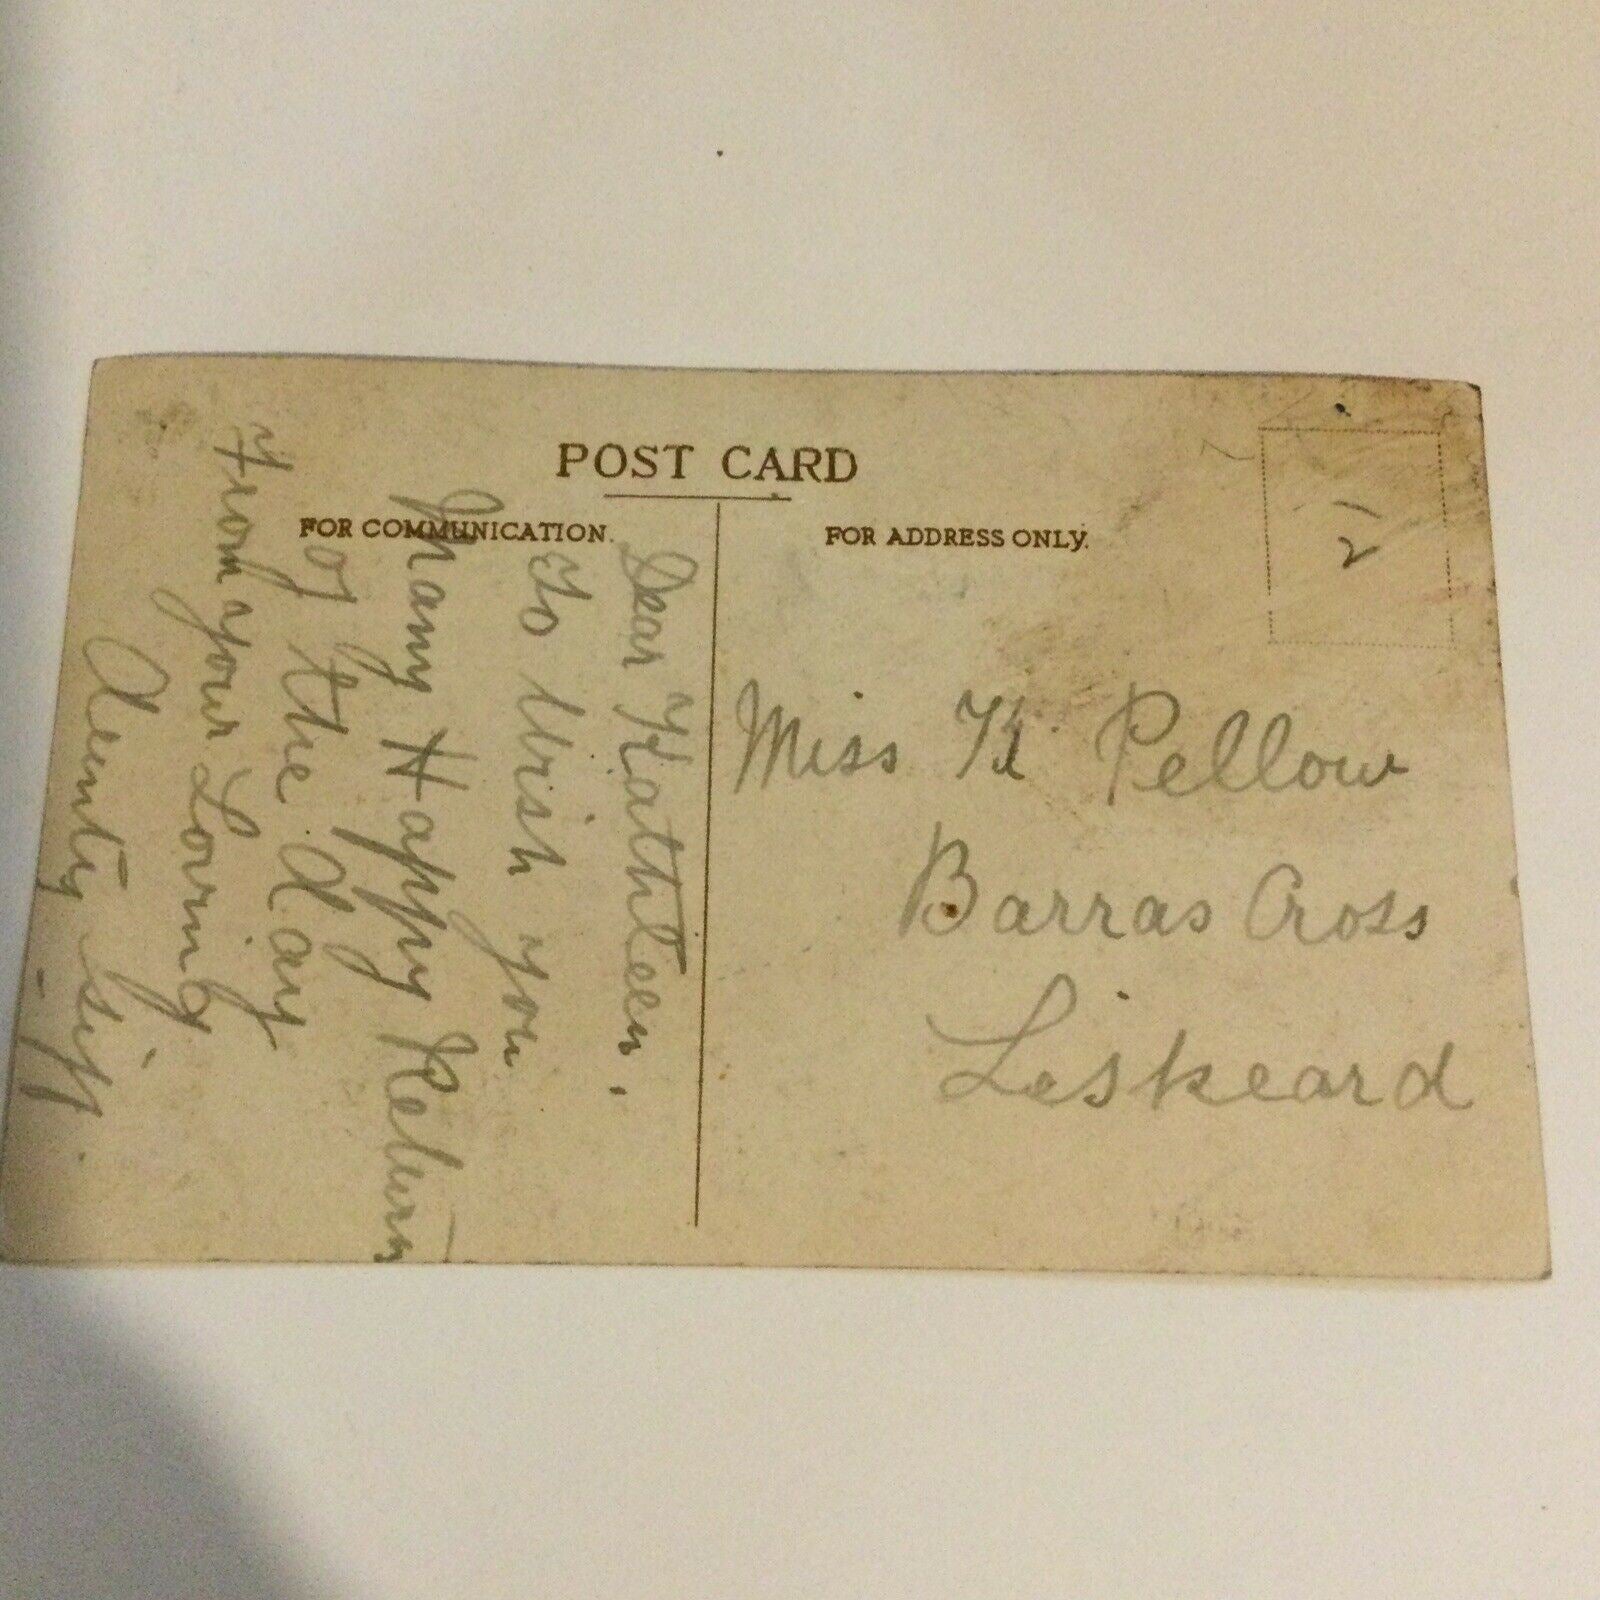 POST CARD
FOR COMMUNICATION.
Dear Kathleen,
To Wish you
Many Happy Return
of the Day
From your Loving
Aunty
FOR ADDRESS ONLY.
21
Miss K Pellow
Barras Cross
Liskeard